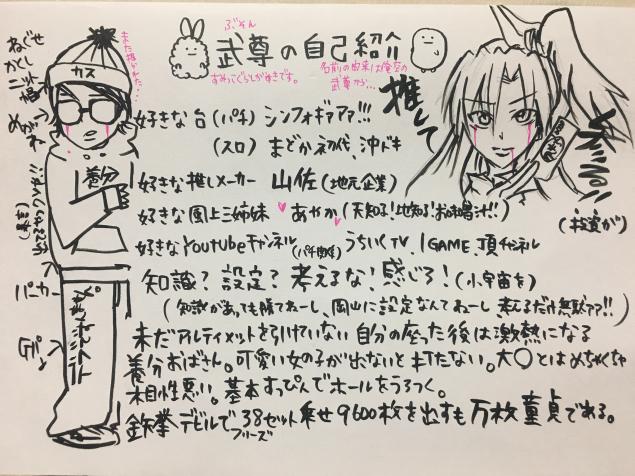 ぶそん
武尊の自己紹介
すみっこぐらし好きです。
名前の由来は俺空の
武尊から…
ねぐせ
かくし
ニット
帽
また抱かれた…
カス
めがね
養分
パーカー
Gパン
推して
(投資が)
好きな台(パチ) シンフォギアァァ!!!
(スロ) まどか初代、沖ドキ
好きな推しメーカー 山佐(地元企業)
好きな風上三姉妹 ♥ あやか(天知る!地知る!お味噌汁!!)
好きなYoutubeチャンネル (パチ関係) うちいくTV、1GAME、頂チャンネル
知識?設定?考えるな!感じろ!(小宇宙を)
(知識があっても勝てねーし、岡山に設定なんてねーし 考えるだけ無駄ァァ!!)
未だアルティメットを引けていない 自分の座った後は激熱になる
養分おばさん。可愛い女の子が出ないと打たない。大〇とはめちゃくちゃ
相性悪い。基本すっぴんでホールをうろつく。
鉄拳デビルで38セット乗せ9600枚を出すも万枚童貞である。
フリーズ